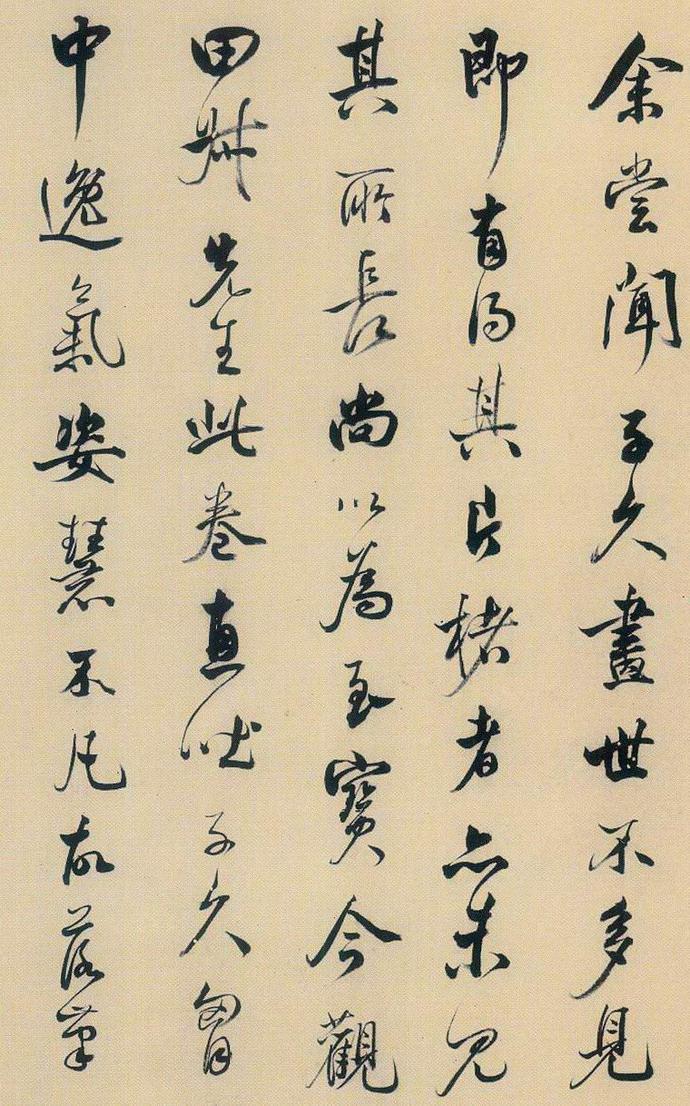 余嘗聞子久畫世不多見
即有得其片楮者亦未見
其所長尚以為至寶今觀
田叔先生此卷直吐子久胷
中逸氣姿慧不凡故落筆